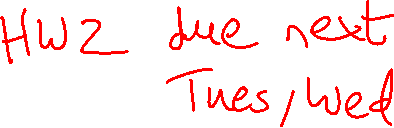 HW2 due next
Tues/Wed